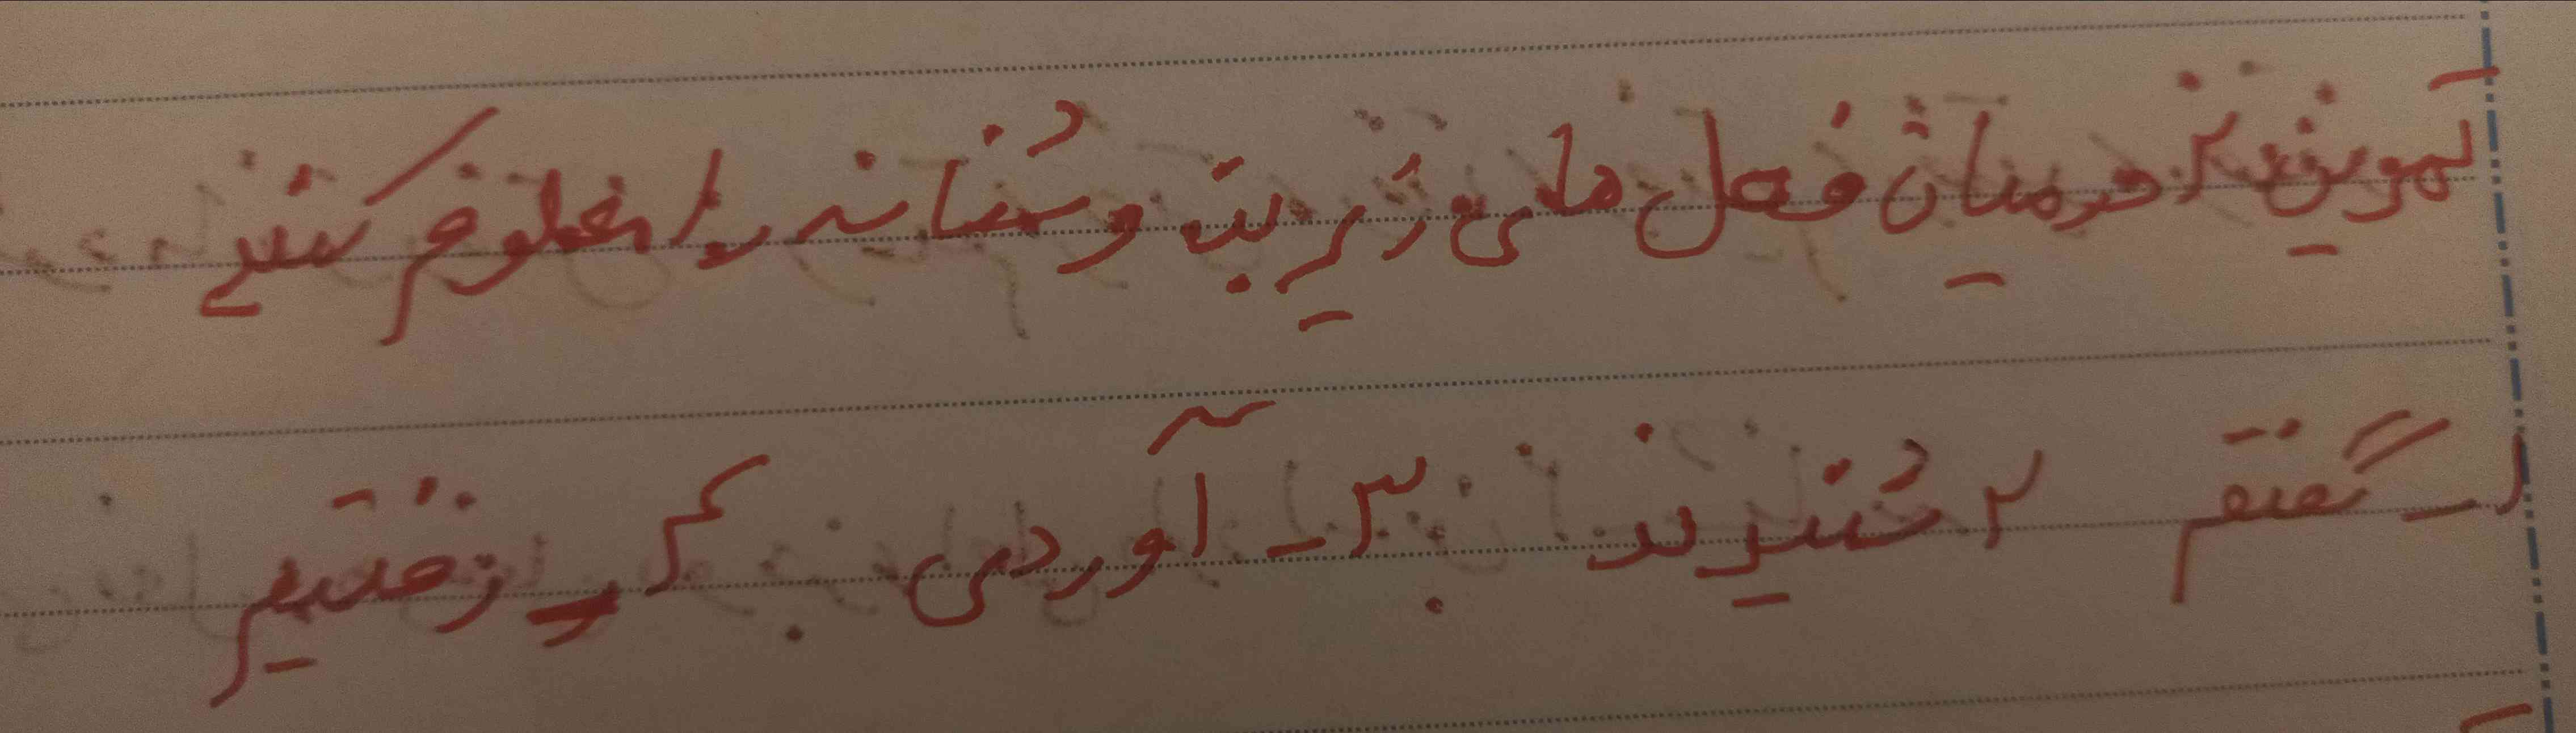 تمرین ۲ درمیان فعل های زیر بن و شناسه را معلوم کنید
۱- گفتم ۲ شنیدند ۳- آوردی ۴- رفتیم